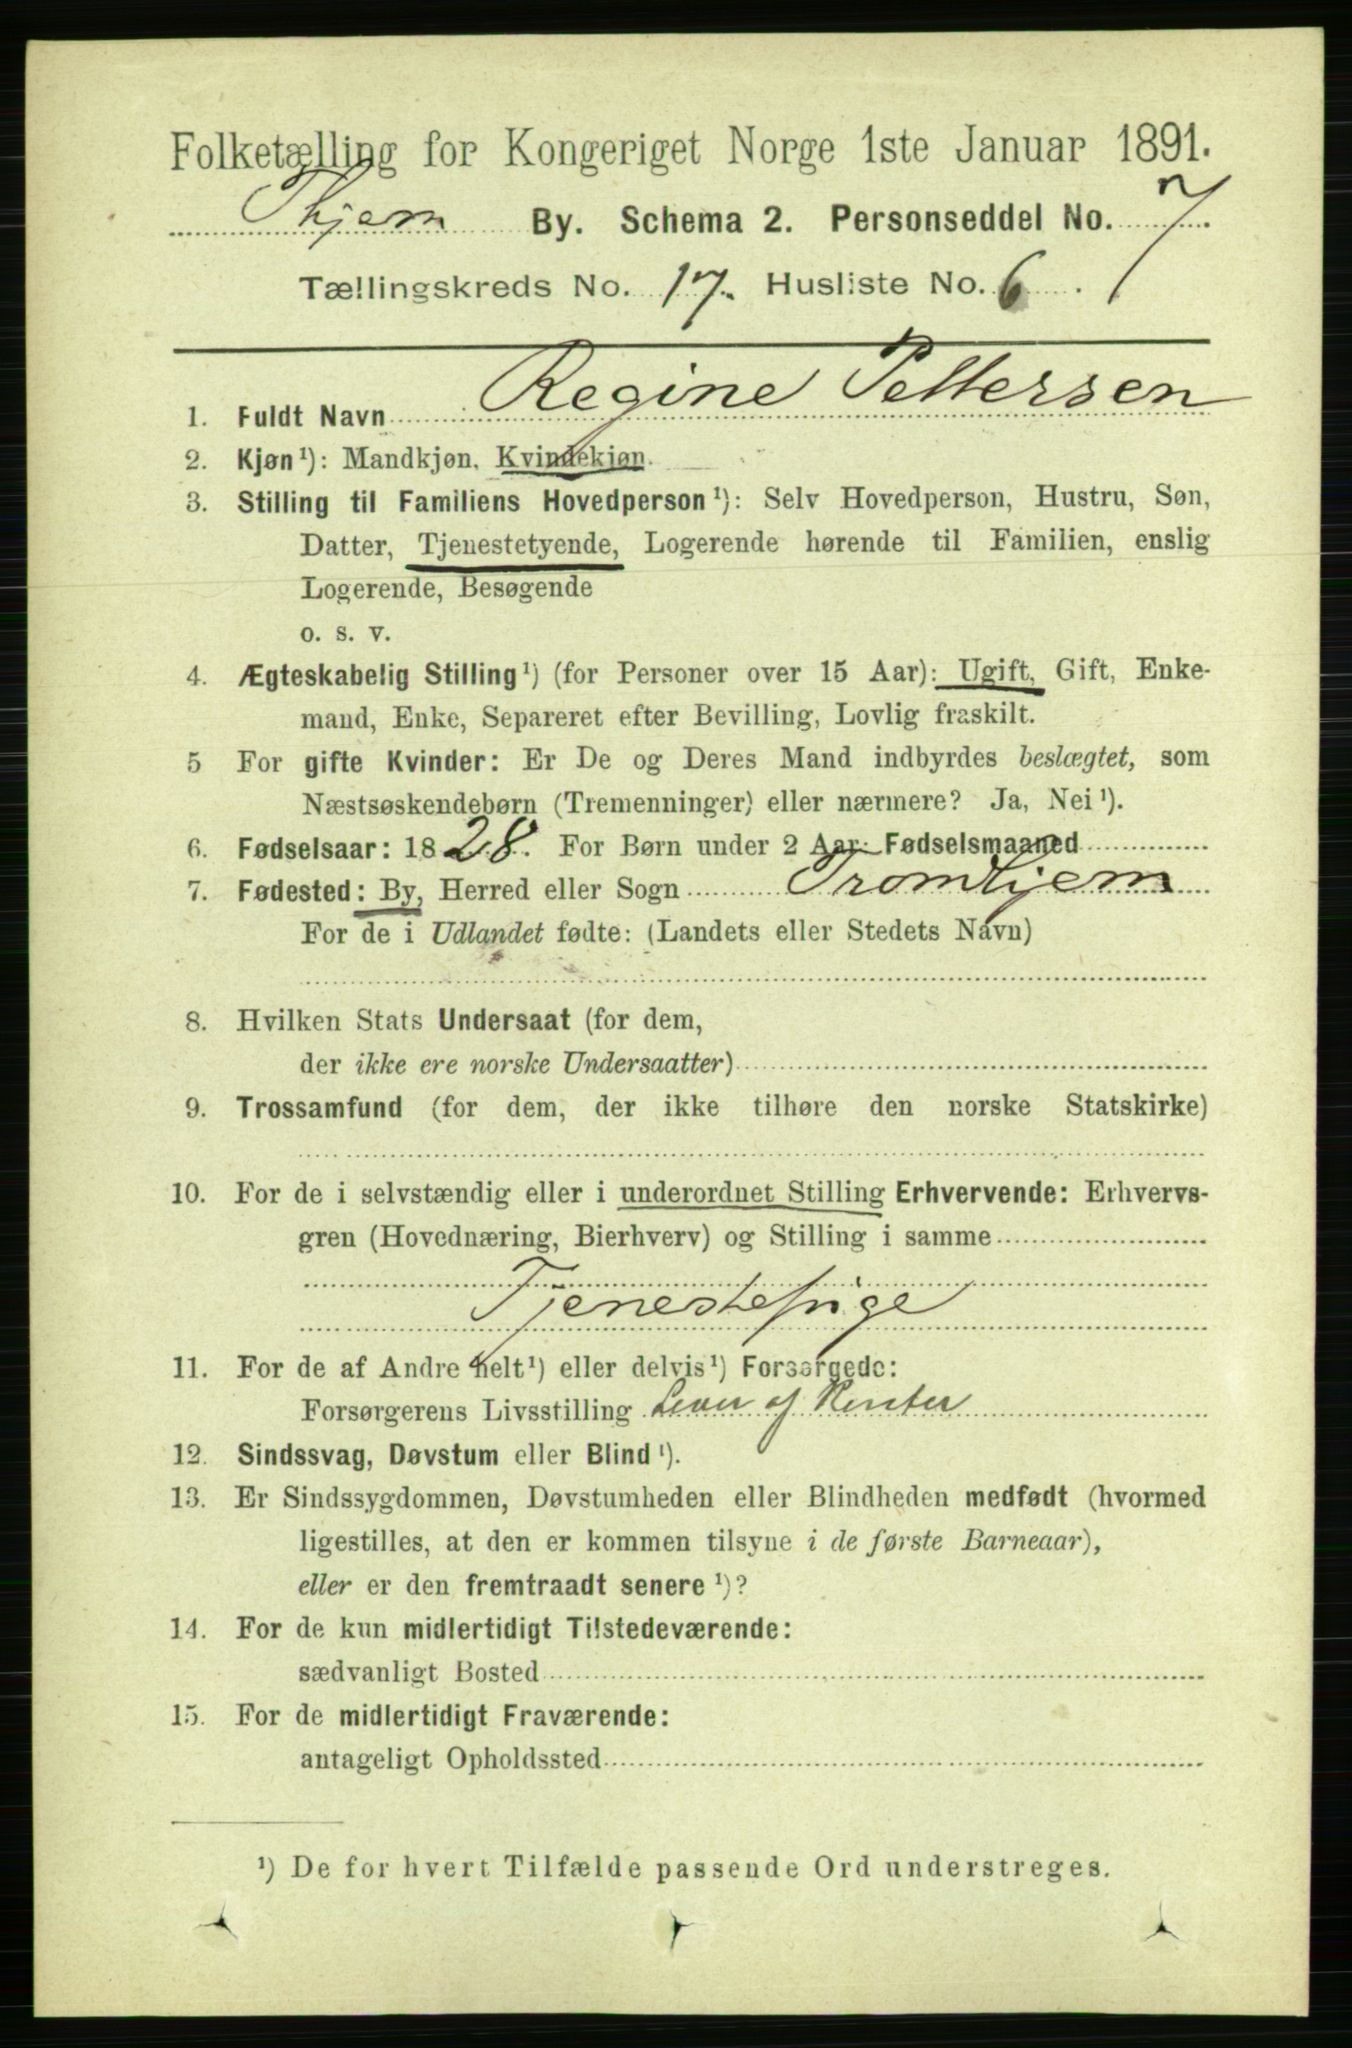 Folketælling for Kongeriget Norge 1ste Januar 1891.
Thjem By. Schema 2. Personseddel No. 7.
Tællingskreds No. 17. Husliste No. 6.
1. Fuldt Navn Regine Pettersen
2. Kjøn¹): Mandkjøn, Kvindekjøn.
3. Stilling til Familiens Hovedperson¹): Selv Hovedperson, Hustru, Søn,
Datter, Tjenestetyende, Logerende hørende til Familien, enslig
Logerende, Besøgende
o. s. v.
4. Ægteskabelig Stilling¹) (for Personer over 15 Aar): Ugift, Gift, Enke-
mand, Enke, Separeret efter Bevilling, Lovlig fraskilt.
5 For gifte Kvinder: Er De og Deres Mand indbyrdes beslægtet, som
Næstsøskendebørn (Tremenninger) eller nærmere? Ja, Nei¹).
6. Fødselsaar: 1828. For Børn under 2 Aar: Fødselsmaaned
7. Fødested: By, Herred eller Sogn Tromhjem
For de i Udlandet fødte: (Landets eller Stedets Navn)
8. Hvilken Stats Undersaat (for dem,
der ikke ere norske Undersaatter)
9. Trossamfund (for dem, der ikke tilhøre den norske Statskirke)
10. For de i selvstændig eller i underordnet Stilling Erhvervende: Erhvervs-
gren (Hovednæring, Bierhverv) og Stilling i samme
Tjenestepige
11. For de af Andre helt¹) eller delvis¹) Forsørgede:
Forsørgerens Livsstilling Lever af Renter
12. Sindssvag, Døvstum eller Blind¹).
13. Er Sindssygdommen, Døvstumheden eller Blindheden medfødt (hvormed
ligestilles, at den er kommen tilsyne i de første Barneaar),
eller er den fremtraadt senere¹)?
14. For de kun midlertidigt Tilstedeværende:
sædvanligt Bosted
15. For de midlertidigt Fraværende:
antageligt Opholdssted
¹) De for hvert Tilfælde passende Ord understreges.